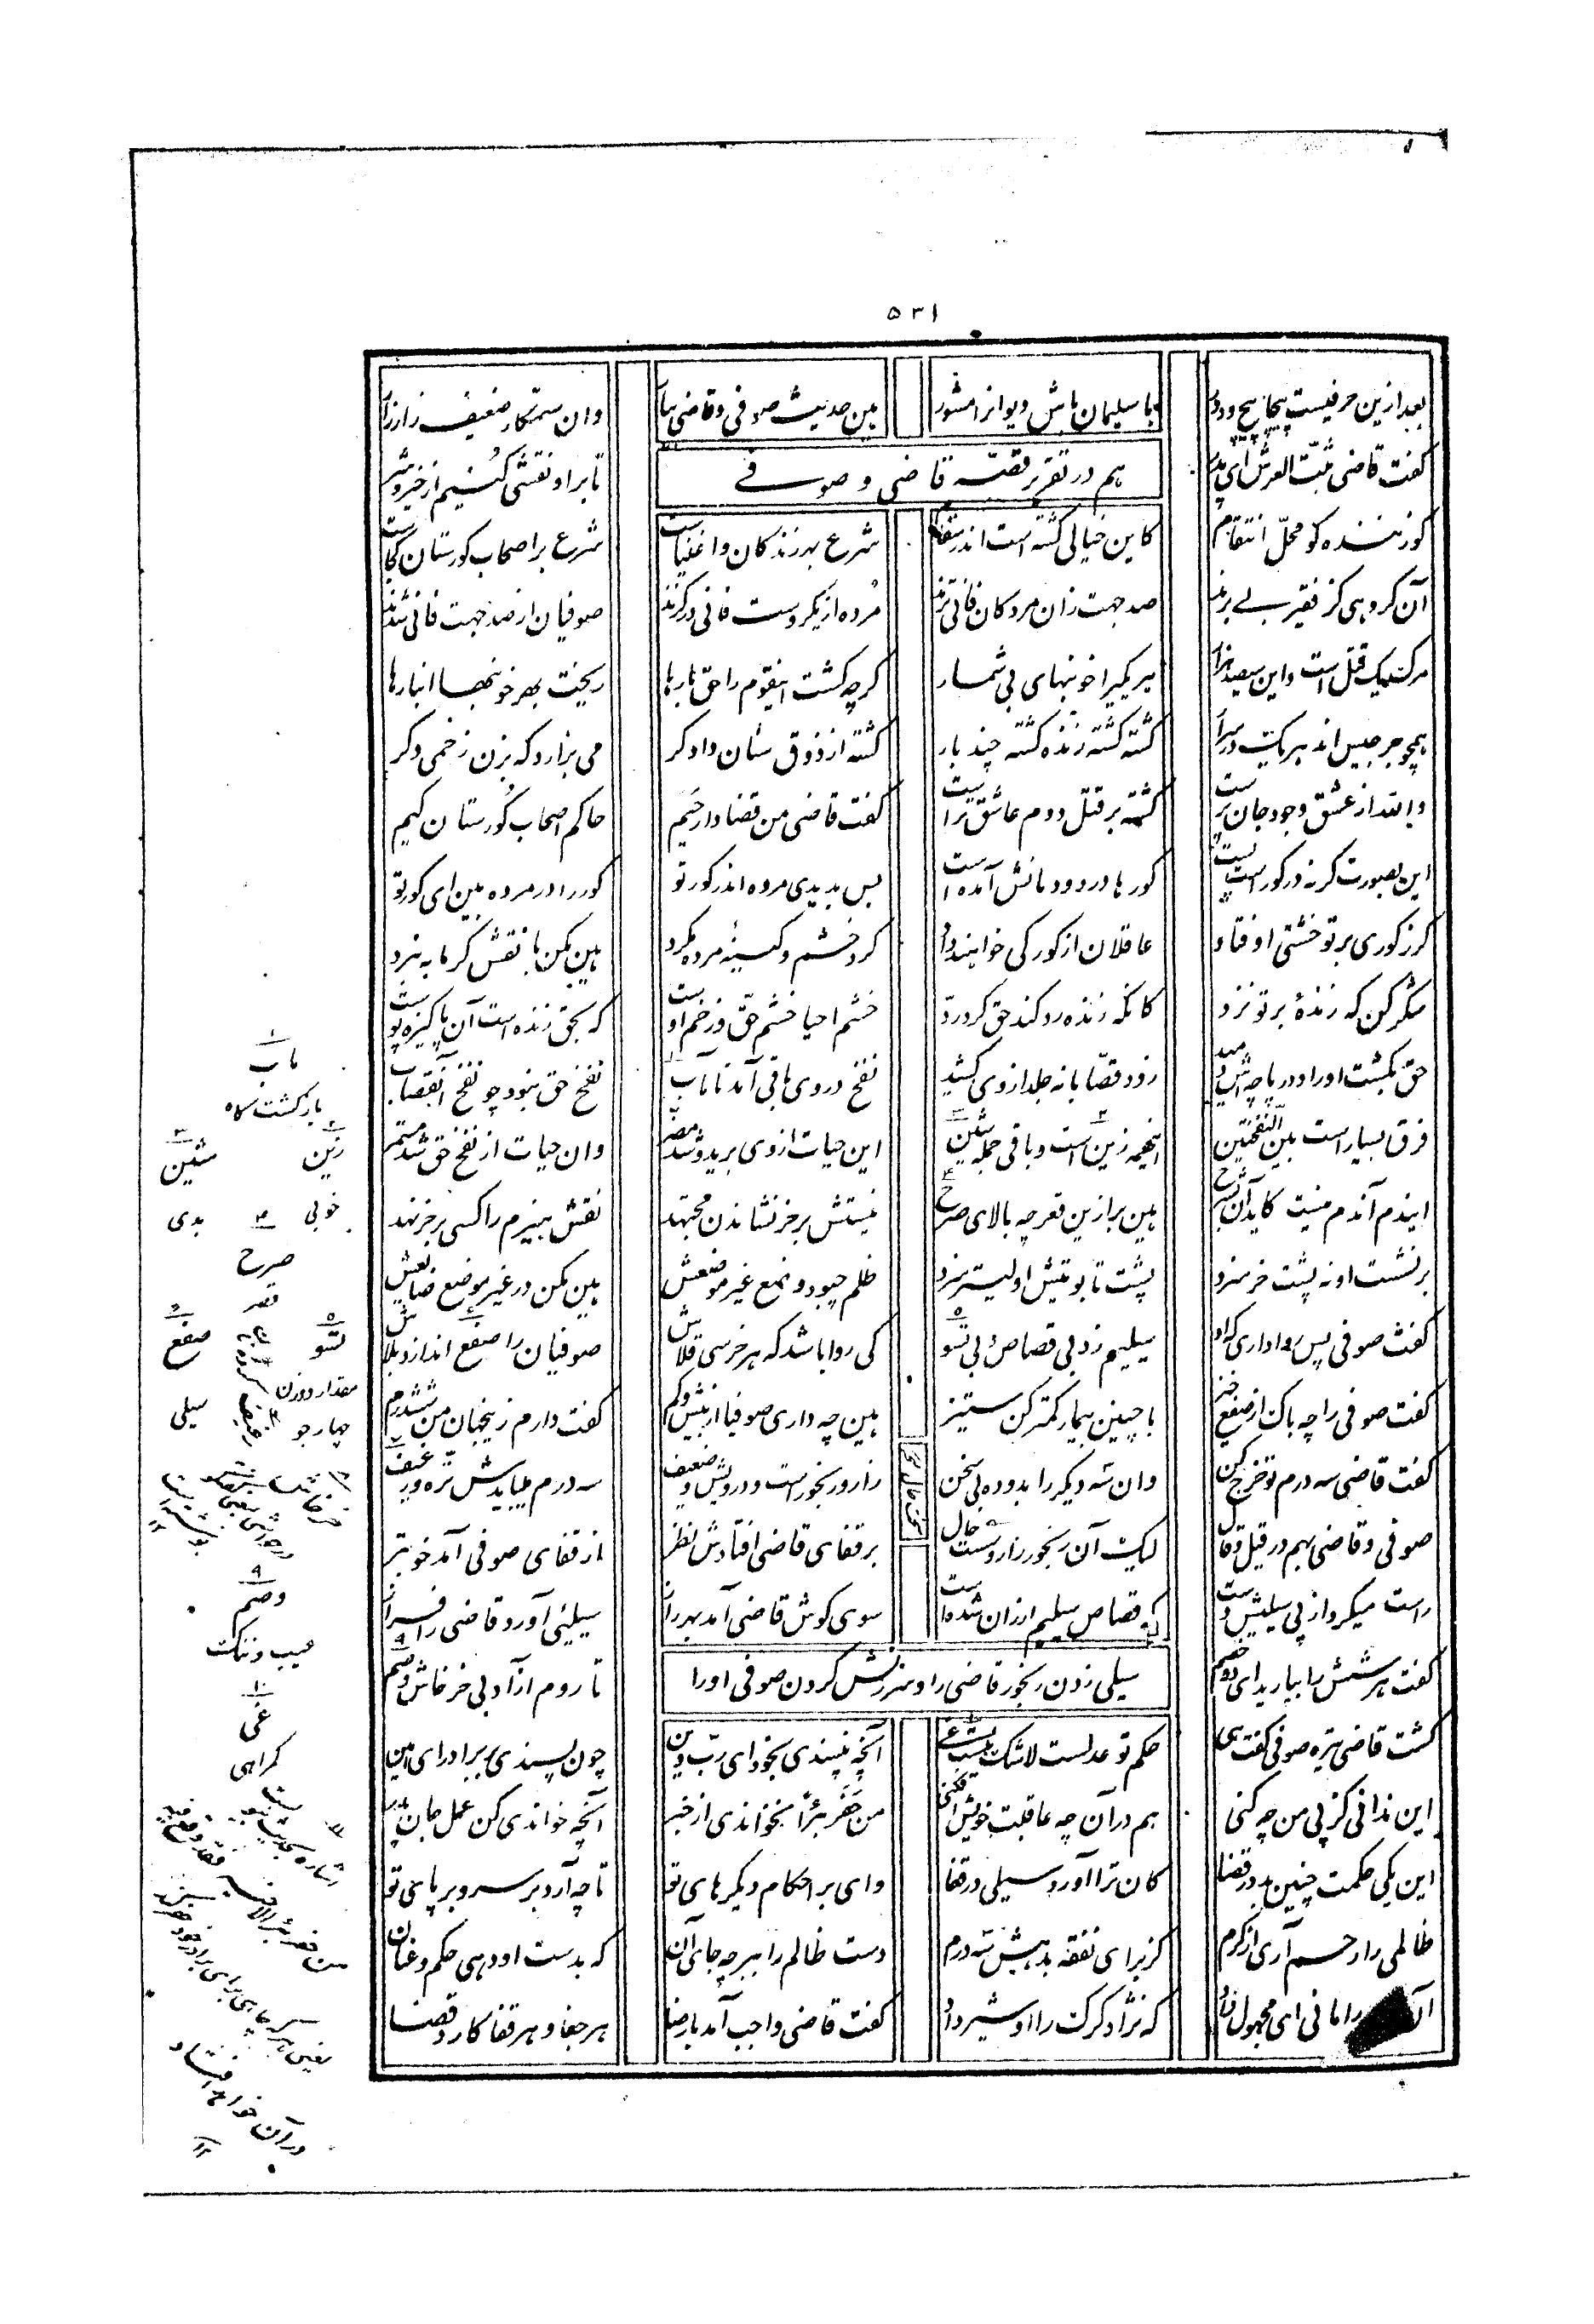 ۵۳۱
بعد ازین حرفیست پیچاپیچ و دور با سلیمان باش و دیوانرا مشور بین حدیث صوفی و قاضی بیار وان ستمکار ضعیف زار زار
گفت قاضی ثبّت العرش ای پدر تا برو نقشی کنیم از خیر و شر
هم در تقریر قصهٔ قاضی و صوفی
کو زننده کو محلّ انتقام کاین خیالی گشته است اندر سقام شرع بهر زندگان و اغنیاست شرع بر اصحاب گورستان کجاست
آن گروهی کز فقیری بی‌برند صد جهت زان مردگان فانی‌ترند مرده از یکروست فانی در گزند صوفیان از صد جهت فانی شدند
مرگ یک قتل است و این سیصد هزار هر یکیرا خونبهای بی شمار گرچه کشت اینقوم را حق بارها ریخت بهر خونبها انبارها
همچو جرجیس اند هر یک در سرار کشته گشته زنده گشته چند بار کشته از ذوق سنان دادگر می بزارد که بزن زخمی دگر
والله از عشق وجود جان پرست کشته بر قتل دوم عاشق ترست گفت قاضی من قضا دار حیم حاکم اصحاب گورستان کیم
این بصورت گر نه در گورست پست گورها در دودمانش آمدست بس بدیدی مرده اندر گور تو گور را در مرده بین ای کور تو
گر ز گوری بر تو خشتی اوفتاد عاقلان از گور کی خواهند داد گرد خشم و کینهٔ مرده مگرد هین مکن با نقش گرمابه نبرد
شکر کن که زندهٔ بر تو نزد کانکه زنده رد کند حق کرد رد خشم احیا خشم حقّ و زخم اوست که بحق زنده است آن پاکیزه پوست
حق بکشت او را و در پاچه‌اش دمید زود قصّابانه جلد از وی کشید نفخ در وی باقی آمد تا مآب نفخ حق نبود چو نفخ آن قصاب
فرق بسیار است بین النفختین اینهمه زین است و باقی جمله شین این حیات از وی برید و شد مضر وان حیات از نفخ حق شد مستمر
ایندم آندم نیست کاید آن بشرح هین برا زین قعر چه بالای صرح نیستش بر خر نشاندن مجتهد نقش هیزم را کسی بر خر نهد
بر نشست او نه پشت خر سزد پشت تابوتیش اولیتر سزد ظلم چبود وضع غیر موضعش هین مکن در غیر موضع ضایعش
گفت صوفی پس روا داری که او سیلیم زد بی قصاص و بی تسو کی روا باشد که هر خرسی قلاش صوفیان را صفع اندازد بلاش
گفت صوفی را چه باک از صفع خیز با چنین بیمار کمتر کن ستیز هین چه داری صوفیا از بیش و کم گفت دارم زینجهان من شش درم
گفت قاضی سه درم تو خرج کن وان سه دیگر را بدو ده بی سخن زار و رنجور است و درویش و ضعیف سه درم میبایدش تره و رغیف
صوفی و قاضی بهم در قیل و قال لیک آن رنجور زار و سست حال بر قفای قاضی افتادش نظر از قفای صوفی آمد خوبتر
راست میکرد از پی سیلیش دست که قصاص سیلیم ارزان شده‌است سوی گوش قاضی آمد بهر راز سیلیی آورد قاضی را فراز
گفت هر شش را بیارید ای دو خصم تا روم آزاد بی خرخاش و وصم
سیلی زدن رنجور قاضی را و سرزنش کردن صوفی او را
گشت قاضی تیره صوفی گفت هی حکم تو عدلست لاشک نیست غی آنچه نپسندی بخود ای ربّ دین چون پسندی بر برادر ای امین
این ندانی کز پی من چه کنی هم در آن چه عاقبت خویش افکنی من حَفَر بئراً نخواندی از خبر آنچه خواندی کن عمل جان پدر
این یکی حکمت چنین بد در قضا کان ترا آورد سیلی در قفا وای بر احکام دیگرهای تو تا چه آرد بر سر و بر پای تو
ظالمی را رحم آری از کرم کز برای نفقه بدهیش سه درم دست ظالم را ببر چه جای آن که بدست او دهی حکم و عنان
را مانی ای مجهول داد که نژاد گرگ را او شیر داد گفت قاضی واجب آمد بارضا هر جفا و هر قفا کارد قضا
۱
مآب
بازگشت گاه
۲
زین
خوبی
۳
شین
بدی
۴
صرح
قصر
۵
تسو
مقدار وزن
چهار جو
۶
صفع
سیلی
۹
وصم
عیب و ننگ
۱۰
غی
گمراهی